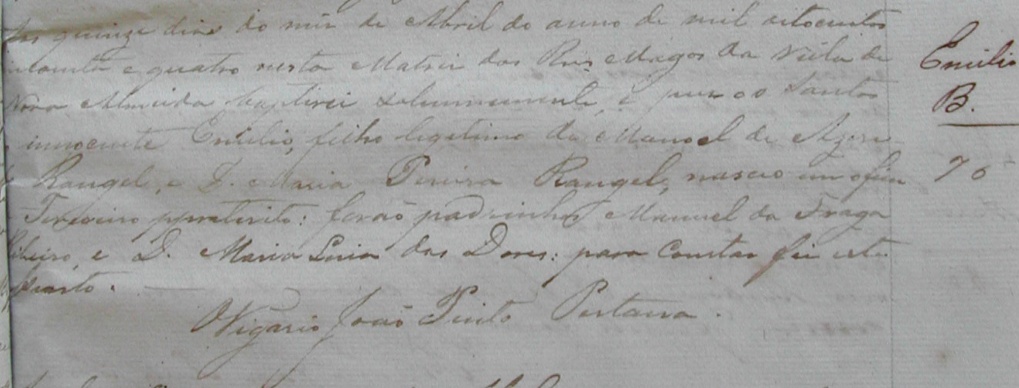 quinze dias do mez de Abril do anno de mil oitocentos
e quatro nesta Matriz dos Reis Magos da Villa de
Nova Almeida baptizei solemnemente, e puz os Santos
innocente Emilio, filho legitimo de Manoel de
Rangel, e D. Maria Pereira Rangel, nasceo em
Fevereiro preterito: forão padrinhos Manuel da Fraga
Ribeiro, e D. Maria das Dores: para constar fiz este
assento.
Vigario João Pinto Pestana.
Emilio
B.
76